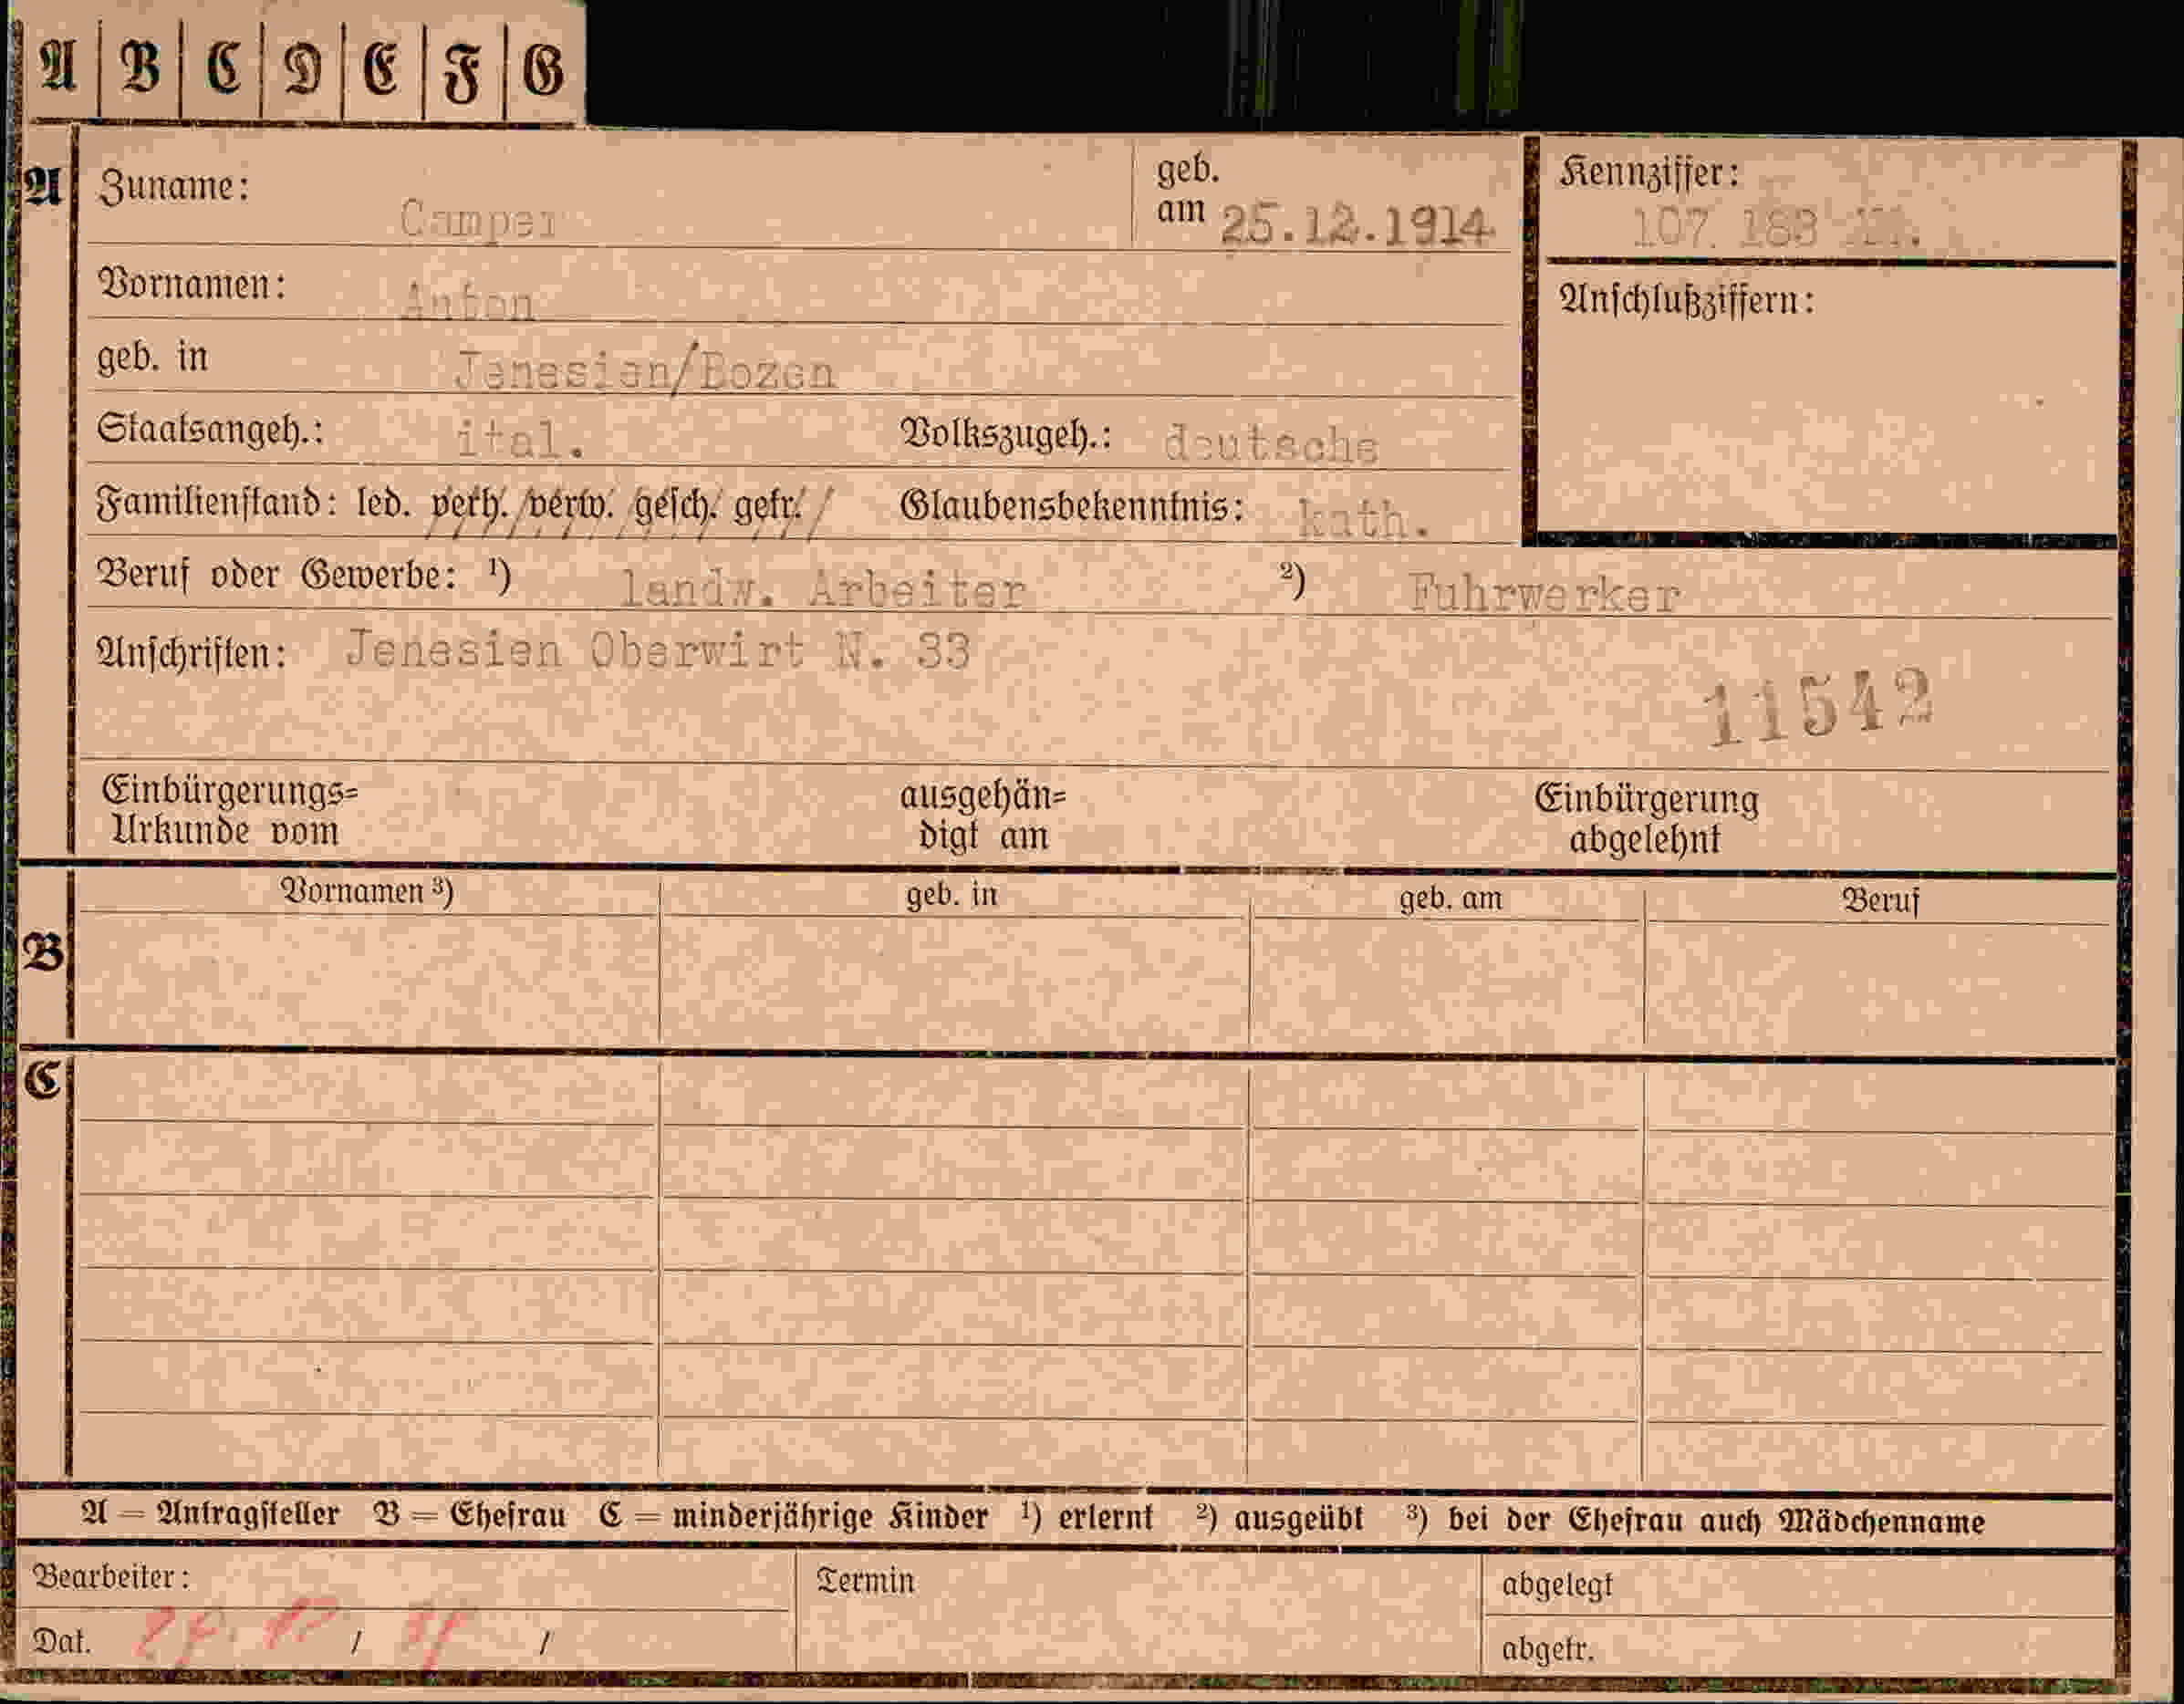 A B C D E F G
A Zuname: Camper geb. am 25.12.1914 Kennziffer: 107. 183
Vornamen: Anton Anschlußziffern:
geb. in Jenesien/Bozen
Staatsangeh.: ital. Volkszugeh.: deutsche
Familienstand: led. verh. verw. gesch. getr. Glaubensbekenntnis: kath.
Beruf oder Gewerbe: ¹) landw. Arbeiter ²) Fuhrwerker
Anschriften: Jenesien Oberwirt N. 33
11542
Einbürgerungs= ausgehän= Einbürgerung
Urkunde vom digt am abgelehnt
Vornamen ³) geb. in geb. am Beruf
B
C
A = Antragsteller B = Ehefrau C = minderjährige Kinder ¹) erlernt ²) ausgeübt ³) bei der Ehefrau auch Mädchenname
Bearbeiter: Termin abgelegt
Dat. / / abgetr.